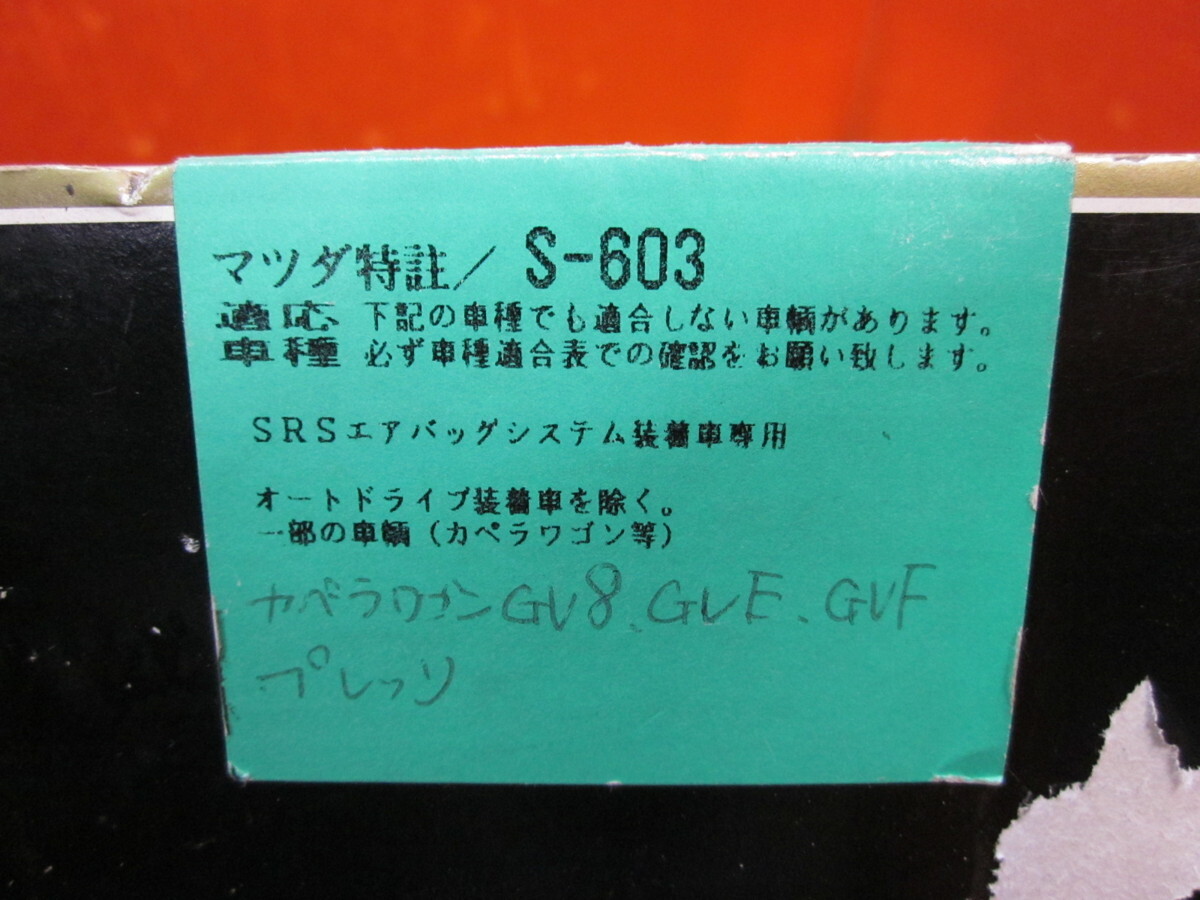 マツダ特註／ S-603
適応 下記の車種でも適合しない車輌があります。
車種 必ず車種適合表での確認をお願い致します。
SRSエアバッグシステム装着車専用
オートドライブ装着車を除く。
一部の車輌（カペラワゴン等）
カペラワゴンGV8、GVE、GVF
プレッソ